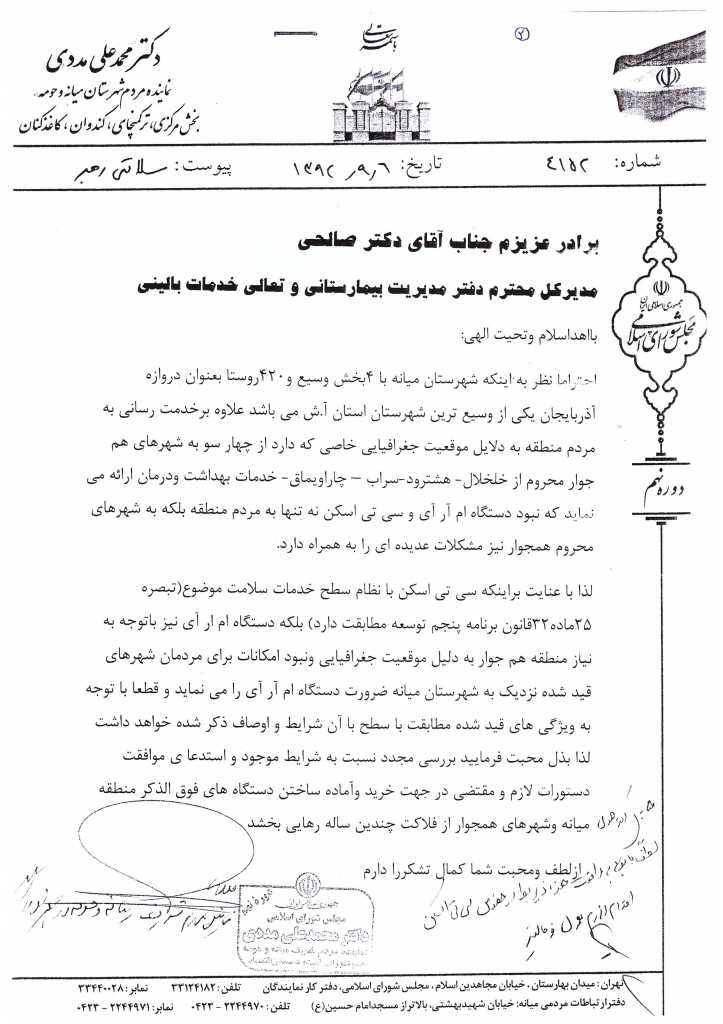 باسمه تعالی
دکتر محمد علی مددی
نماینده مردم شهرستان میانه و حومه
بخش مرکزی، ترکمنچای، کندوان، کاغذکنان
شماره: ۴۱۵۲
تاریخ: ۱۳۹۲/۹/۶
پیوست:
جمهوری اسلامی ایران
مجلس شورای اسلامی
دوره نهم
برادر عزیزم جناب آقای دکتر صالحی
مدیرکل محترم دفتر مدیریت بیمارستانی و تعالی خدمات بالینی
بااهداسلام وتحیت الهی:
احتراما نظر به اینکه شهرستان میانه با ۴بخش وسیع و۴۲۰روستا بعنوان دروازه
آذربایجان یکی از وسیع ترین شهرستان استان آ.ش می باشد علاوه برخدمت رسانی به
مردم منطقه به دلایل موقعیت جغرافیایی خاصی که دارد از چهار سو به شهرهای هم
جوار محروم از خلخلال- هشترود-سراب – چاراویماق- خدمات بهداشت ودرمان ارائه می
نماید که نبود دستگاه ام آر آی و سی تی اسکن نه تنها به مردم منطقه بلکه به شهرهای
محروم همجوار نیز مشکلات عدیده ای را به همراه دارد.
لذا با عنایت براینکه سی تی اسکن با نظام سطح خدمات سلامت موضوع(تبصره
۲۵ماده۳۲قانون برنامه پنجم توسعه مطابقت دارد) بلکه دستگاه ام ار آی نیز باتوجه به
نیاز منطقه هم جوار به دلیل موقعیت جغرافیایی ونبود امکانات برای مردمان شهرهای
قید شده نزدیک به شهرستان میانه ضرورت دستگاه ام آر آی را می نماید و قطعا با توجه
به ویژگی های قید شده مطابقت با سطح با آن شرایط و اوصاف ذکر شده خواهد داشت
لذا بذل محبت فرمایید بررسی مجدد نسبت به شرایط موجود و استدعا ی موافقت
دستورات لازم و مقتضی در جهت خرید وآماده ساختن دستگاه های فوق الذکر منطقه
میانه وشهرهای همجوار از فلاکت چندین ساله رهایی بخشد
ازلطف ومحبت شما کمال تشکررا دارم
دوره نهم
مجلس شورای اسلامی
دکتر محمدعلی مددی
تهران: میدان بهارستان، خیابان مجاهدین اسلام، مجلس شورای اسلامی، دفتر کار نمایندگان تلفن: ۳۳۱۲۴۱۸۲ نمابر: ۳۳۴۴۰۰۲۸
دفتر ارتباطات مردمی میانه: خیابان شهیدبهشتی، بالاتراز مسجدامام حسین(ع) تلفن: ۲۲۴۴۹۷۰ - ۰۴۲۳ نمابر: ۲۲۴۴۹۷۱ - ۰۴۲۳